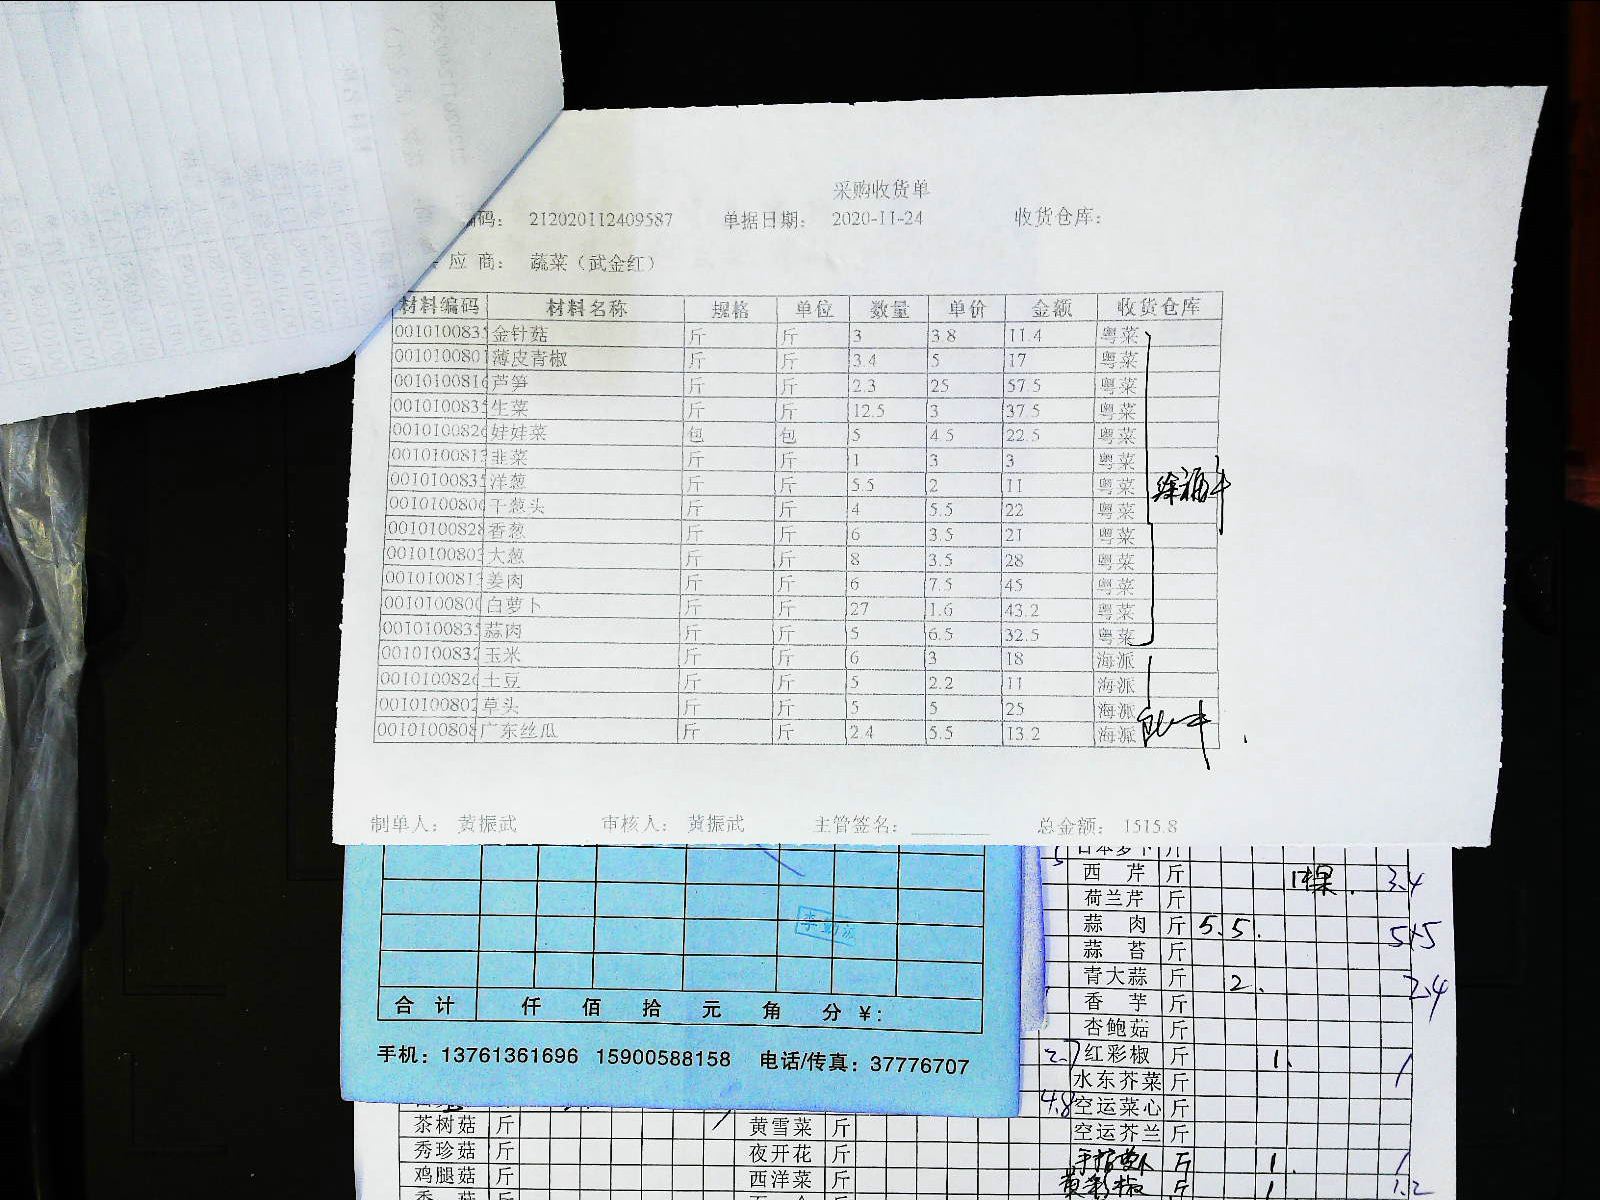 采购收货单
编码： 212020112409587 单据日期： 2020-11-24 收货仓库：
应 商： 蔬菜（武金红）
材料编码 材料名称 规格 单位 数量 单价 金额 收货仓库
0010100835 金针菇 斤 斤 3 3.8 11.4 粤菜
0010100801 薄皮青椒 斤 斤 3.4 5 17 粤菜
0010100816 芦笋 斤 斤 2.3 25 57.5 粤菜
0010100835 生菜 斤 斤 12.5 3 37.5 粤菜
0010100826 娃娃菜 包 包 5 4.5 22.5 粤菜
0010100813 韭菜 斤 斤 1 3 3 粤菜
0010100835 洋葱 斤 斤 5.5 2 11 粤菜
0010100806 干葱头 斤 斤 4 5.5 22 粤菜
0010100828 香葱 斤 斤 6 3.5 21 粤菜
0010100803 大葱 斤 斤 8 3.5 28 粤菜
0010100813 姜肉 斤 斤 6 7.5 45 粤菜
0010100800 白萝卜 斤 斤 27 1.6 43.2 粤菜
0010100835 蒜肉 斤 斤 5 6.5 32.5 粤菜
0010100832 玉米 斤 斤 6 3 18 海派
0010100826 土豆 斤 斤 5 2.2 11 海派
0010100802 草头 斤 斤 5 5 25 海派
0010100808 广东丝瓜 斤 斤 2.4 5.5 13.2 海派
制单人： 黄振武 审核人： 黄振武 主管签名： 总金额： 1515.8
合 计 仟 佰 拾 元 角 分 ¥：
手机：13761361696 15900588158 电话/传真：37776707
日本萝卜 斤
西 芹 斤 1棵. 3.4
荷兰芹 斤
蒜 肉 斤 5.5. 5+5
蒜 苔 斤
青大蒜 斤 2. 2.4
香 芋 斤
杏鲍菇 斤
2.7 红彩椒 斤 1. 1
水东芥菜 斤
4.8 空运菜心 斤
空运芥兰 斤
手指萝卜 斤 1. 1
黄彩椒 斤 1 1.2
茶树菇 斤 黄雪菜 斤
秀珍菇 斤 夜开花 斤
鸡腿菇 斤 西洋菜 斤